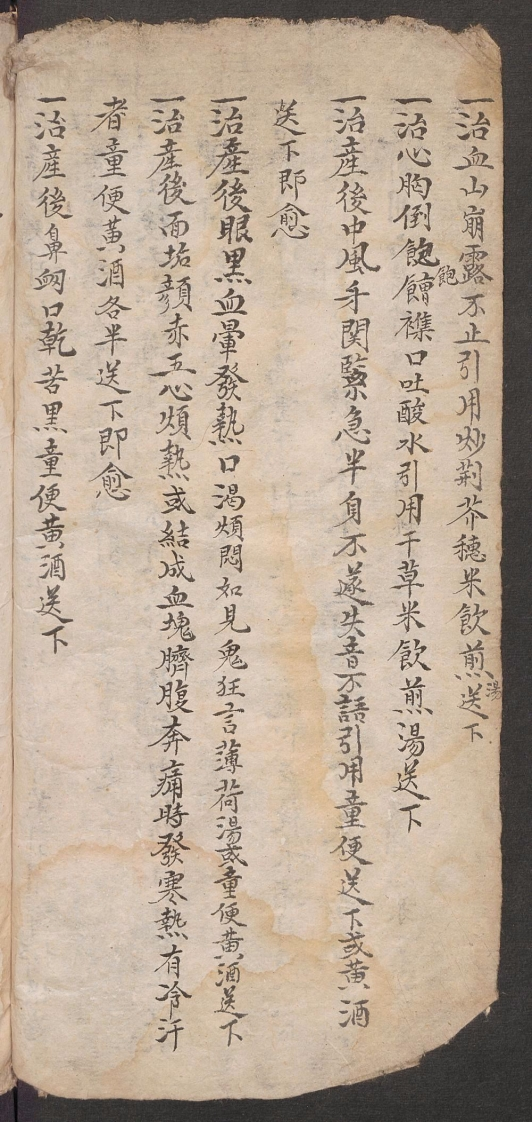 一治血山崩露不止引用炒荆芥穗米飲煎湯送下
一治心胸倒飽飽饍襍口吐酸水引用干草米飲煎湯送下
一治産後中風牙関緊急半身不遂失音不語引用童便送下或黄酒
送下即愈
一治産後眼黒血暈發熱口渴煩悶如見鬼狂言薄荷湯或童便黄酒送下
一治産後面垢顔赤五心煩熱或結成血塊臍腹奔痛時發寒熱有冷汗
者童便黄酒各半送下即愈
一治産後鼻衂口乾苦黒童便黄酒送下